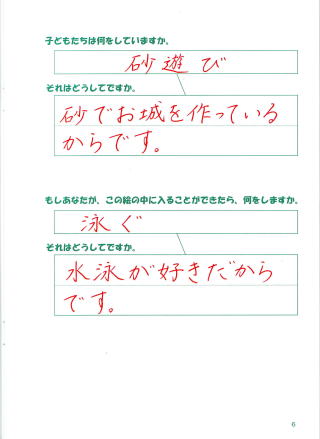 子どもたちは何をしていますか。
砂遊び
それはどうしてですか。
砂でお城を作っている
からです。
もしあなたが、この絵の中に入ることができたら、何をしますか。
泳ぐ
それはどうしてですか。
水泳が好きだから
です。
6